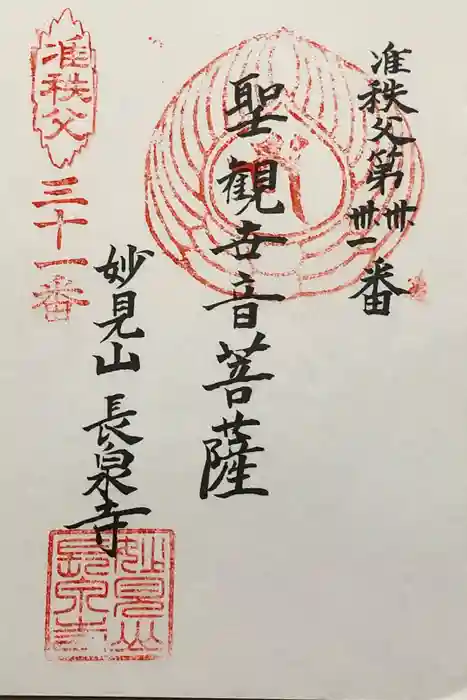 准秩父第卅一番
聖観世音菩薩
准秩父
三十一番
妙見山 長泉寺
妙見山
長泉寺